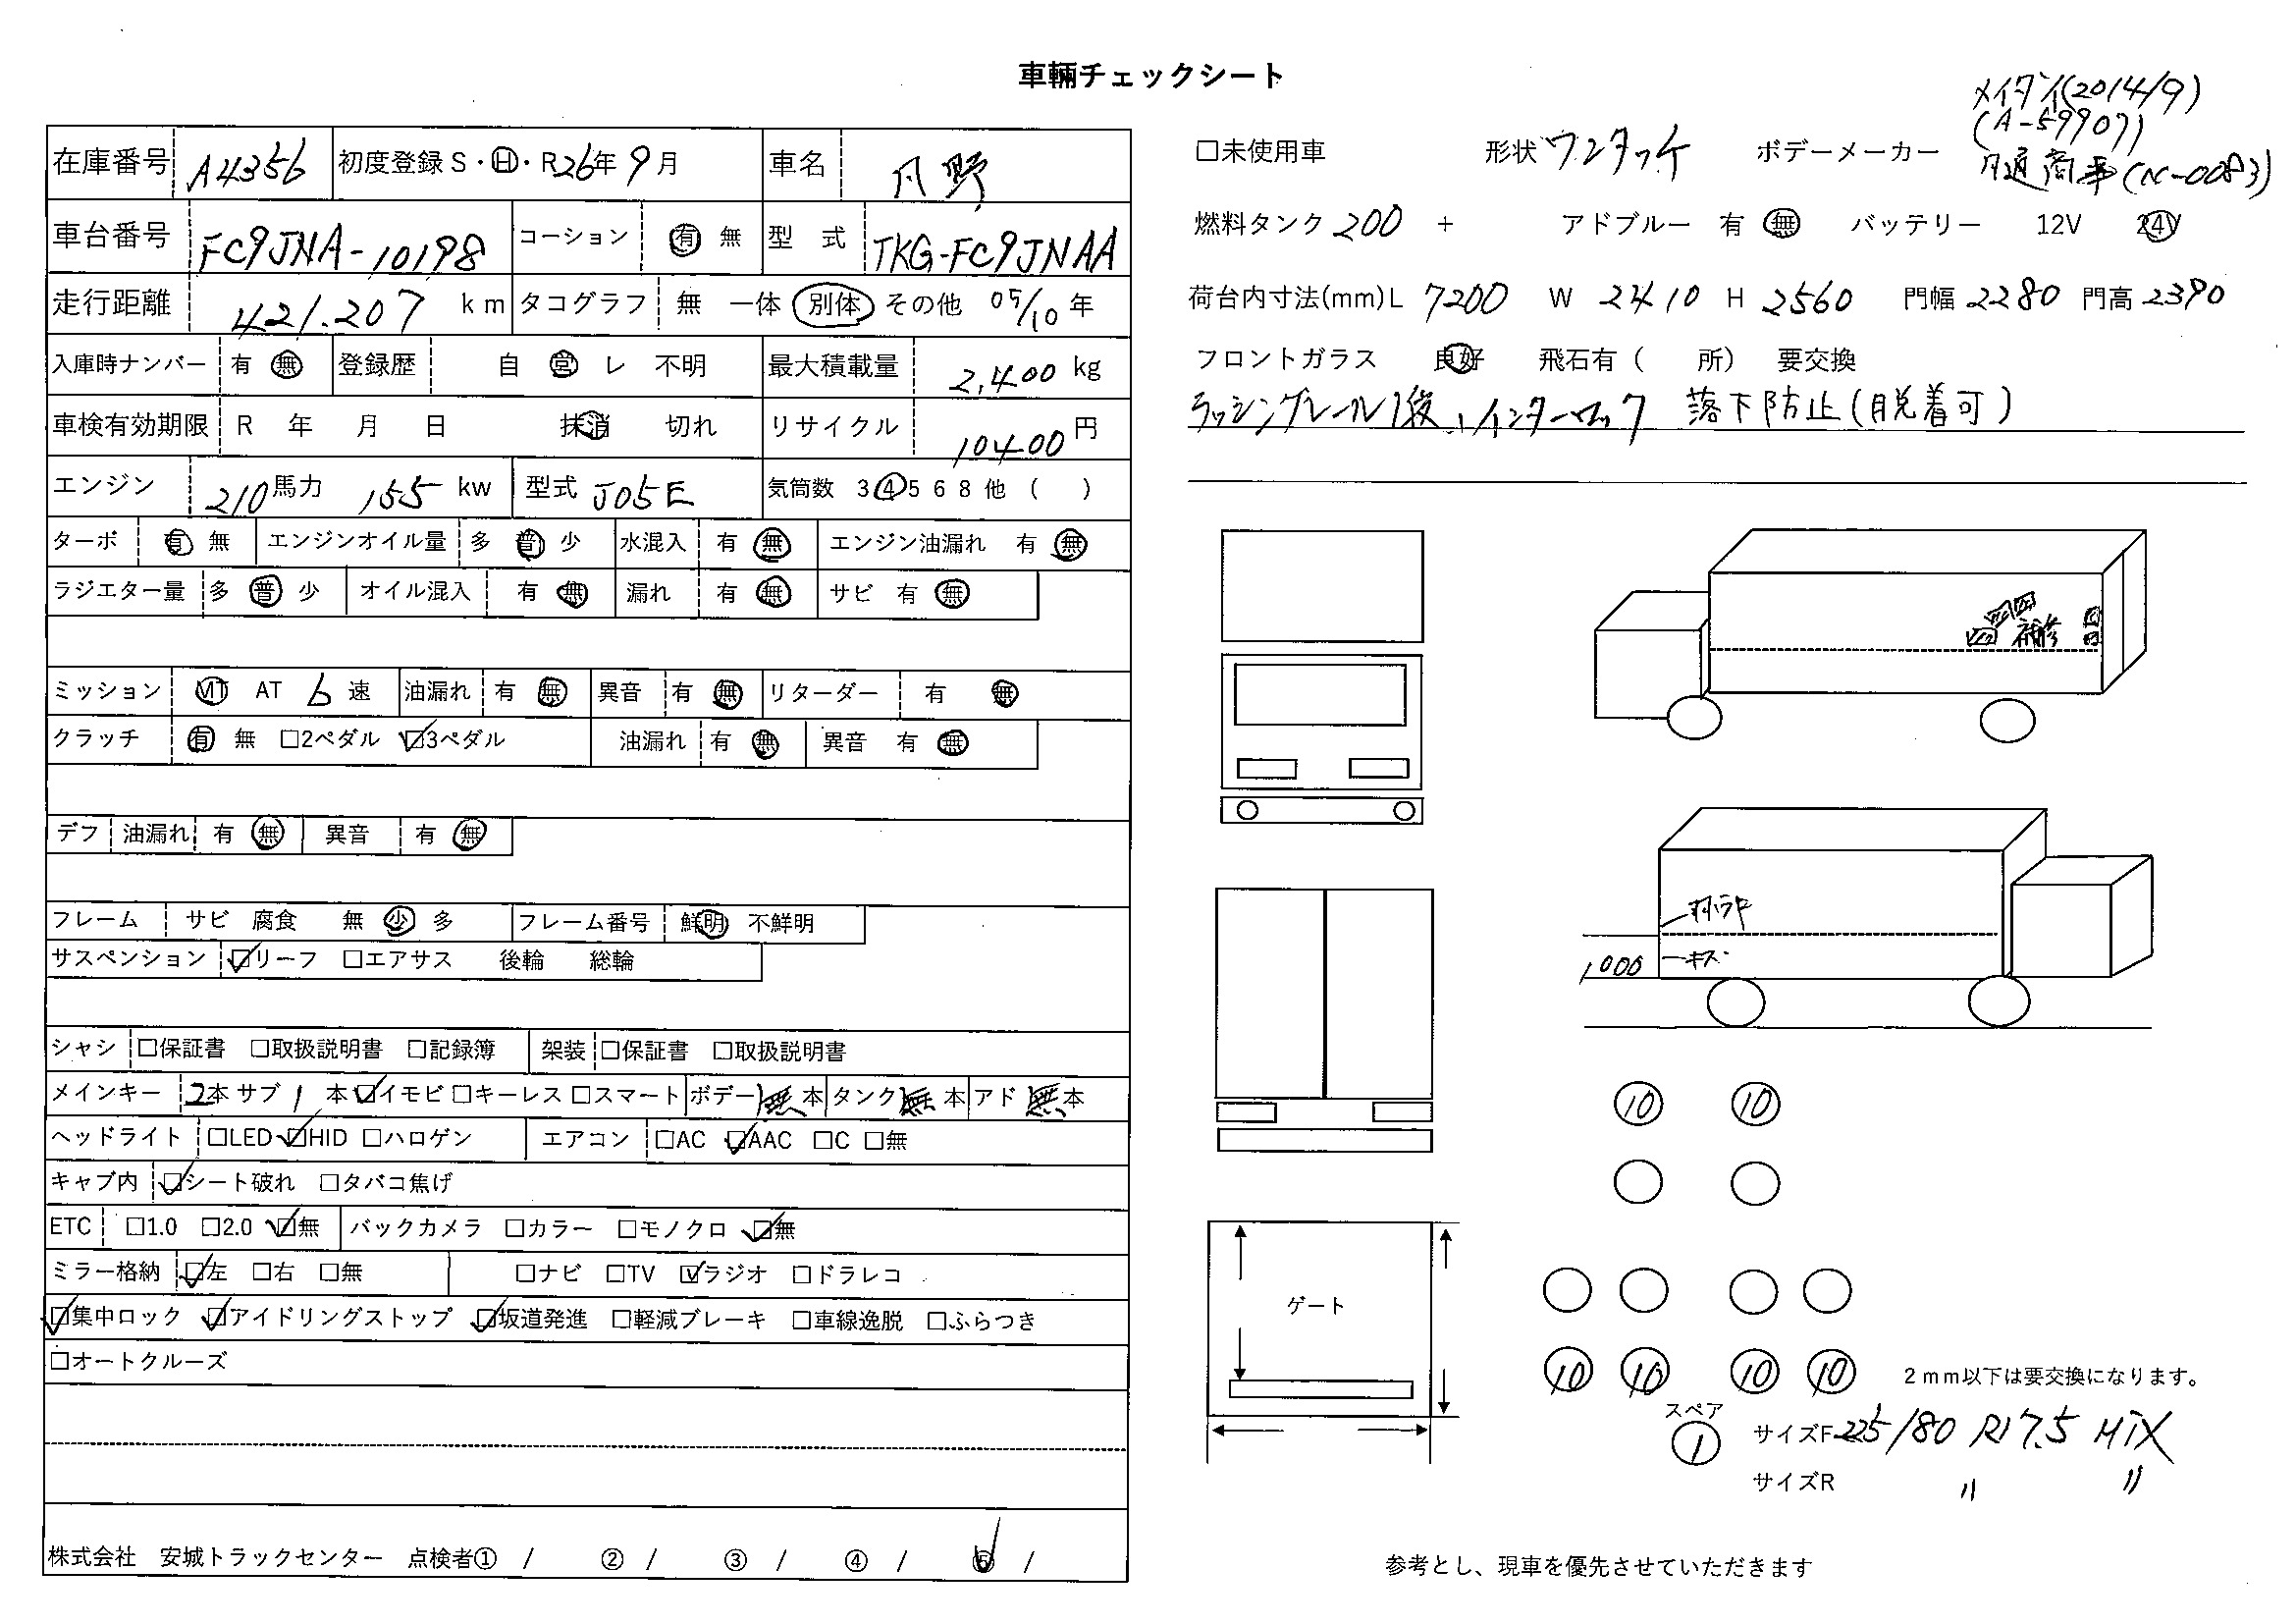 車輛チェックシート
在庫番号 A4356 初度登録 S・H・R 26年 9月 車名 日野
車台番号 FC9JNA-10198 コーション 有 無 型 式 TKG-FC9JNAA
走行距離 421.207 km タコグラフ 無 一体 別体 その他 05/10 年
入庫時ナンバー 有 無 登録歴 自 営 レ 不明 最大積載量 2,400 kg
車検有効期限 R 年 月 日 抹消 切れ リサイクル 10400 円
エンジン 210 馬力 155 kw 型式 J05E 気筒数 3 4 5 6 8 他 ( )
ターボ 有 無 エンジンオイル量 多 普 少 水混入 有 無 エンジン油漏れ 有 無
ラジエター量 多 普 少 オイル混入 有 無 漏れ 有 無 サビ 有 無
ミッション MT AT 6 速 油漏れ 有 無 異音 有 無 リターダー 有 無
クラッチ 有 無 □2ペダル ☑3ペダル 油漏れ 有 無 異音 有 無
デフ 油漏れ 有 無 異音 有 無
フレーム サビ 腐食 無 少 多 フレーム番号 鮮明 不鮮明
サスペンション ☑リーフ □エアサス 後輪 総輪
シャシ □保証書 □取扱説明書 □記録簿 架装 □保証書 □取扱説明書
メインキー 2本 サブ 1 本 ☑イモビ □キーレス □スマート ボデー 無 本 タンク 無 本 アド 無 本
ヘッドライト □LED ☑HID □ハロゲン エアコン □AC ☑AAC □C □無
キャブ内 ☑シート破れ □タバコ焦げ
ETC □1.0 □2.0 ☑無 バックカメラ □カラー □モノクロ ☑無
ミラー格納 ☑左 □右 □無 □ナビ □TV ☑ラジオ □ドラレコ
☑集中ロック ☑アイドリングストップ ☑坂道発進 □軽減ブレーキ □車線逸脱 □ふらつき
□オートクルーズ
株式会社 安城トラックセンター 点検者① / ② / ③ / ④ / ⑤ /
メイダイ(2014/9)
(A-59907)
□未使用車 形状 ワンタッチ ボデーメーカー 月通商事(N-0083)
燃料タンク 200 + アドブルー 有 無 バッテリー 12V 24V
荷台内寸法(mm) L 7200 W 2410 H 2560 門幅 2280 門高 2390
フロントガラス 良好 飛石有 ( 所) 要交換
ラッシングレール1段、インターロック 落下防止(脱着可)
補修
1,000 キズ
10 10
ゲート
10 10 10 10 2mm以下は要交換になります。
スペア
1 サイズF 225/80 R17.5 MIX
サイズR 〃 〃
参考とし、現車を優先させていただきます